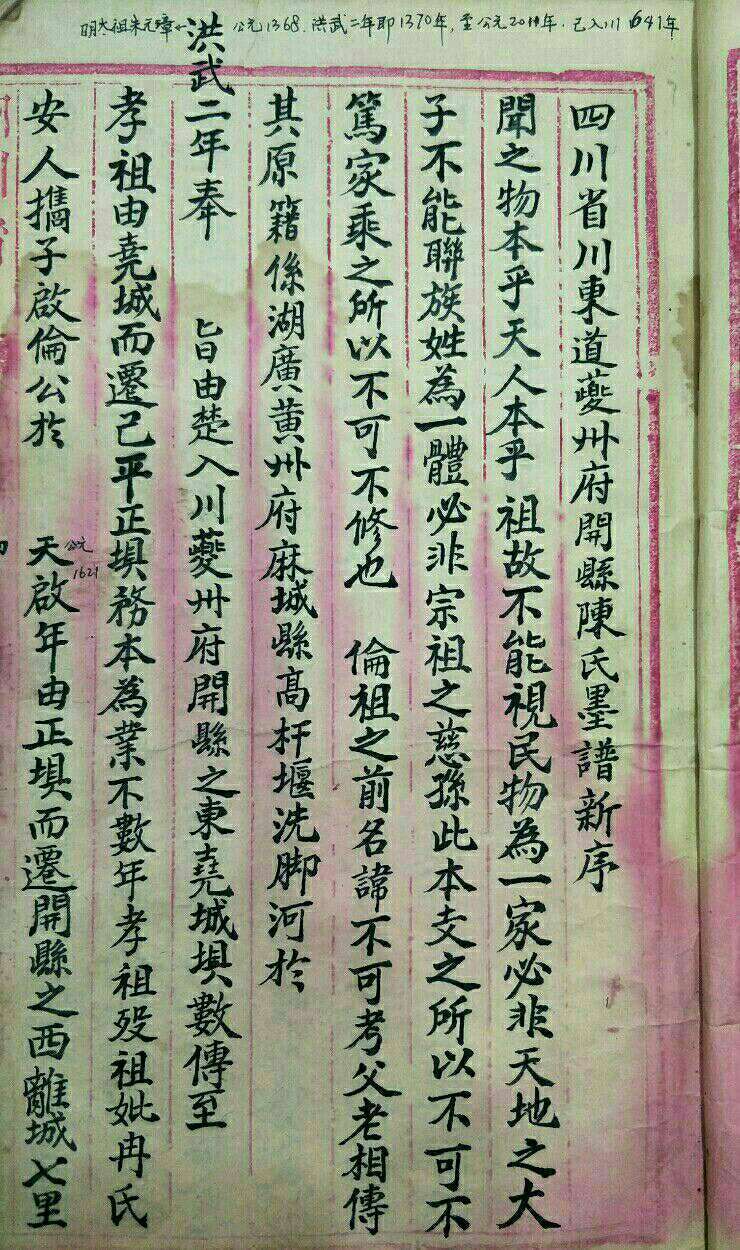 明太祖朱元璋 公元1368.洪武二年即1370年,至公元2011年.已入川641年
四川省川東道夔州府開縣陳氏墨譜新序
聞之物本乎天人本乎 祖故不能視民物為一家必非天地之大
子不能聯族姓為一體必非宗祖之慈孫此本支之所以不可不
篤家乘之所以不可不修也 倫祖之前名諱不可考父老相傳
其原籍係湖廣黄州府麻城縣高杆堰洗脚河於
洪武二年奉 旨由楚入川夔州府開縣之東堯城垻數傳至
孝祖由堯城而遷己平正垻務本為業不數年孝祖殁祖妣冉氏
安人攜子啟倫公於 天啟年由正垻而遷開縣之西離城七里
公元1621